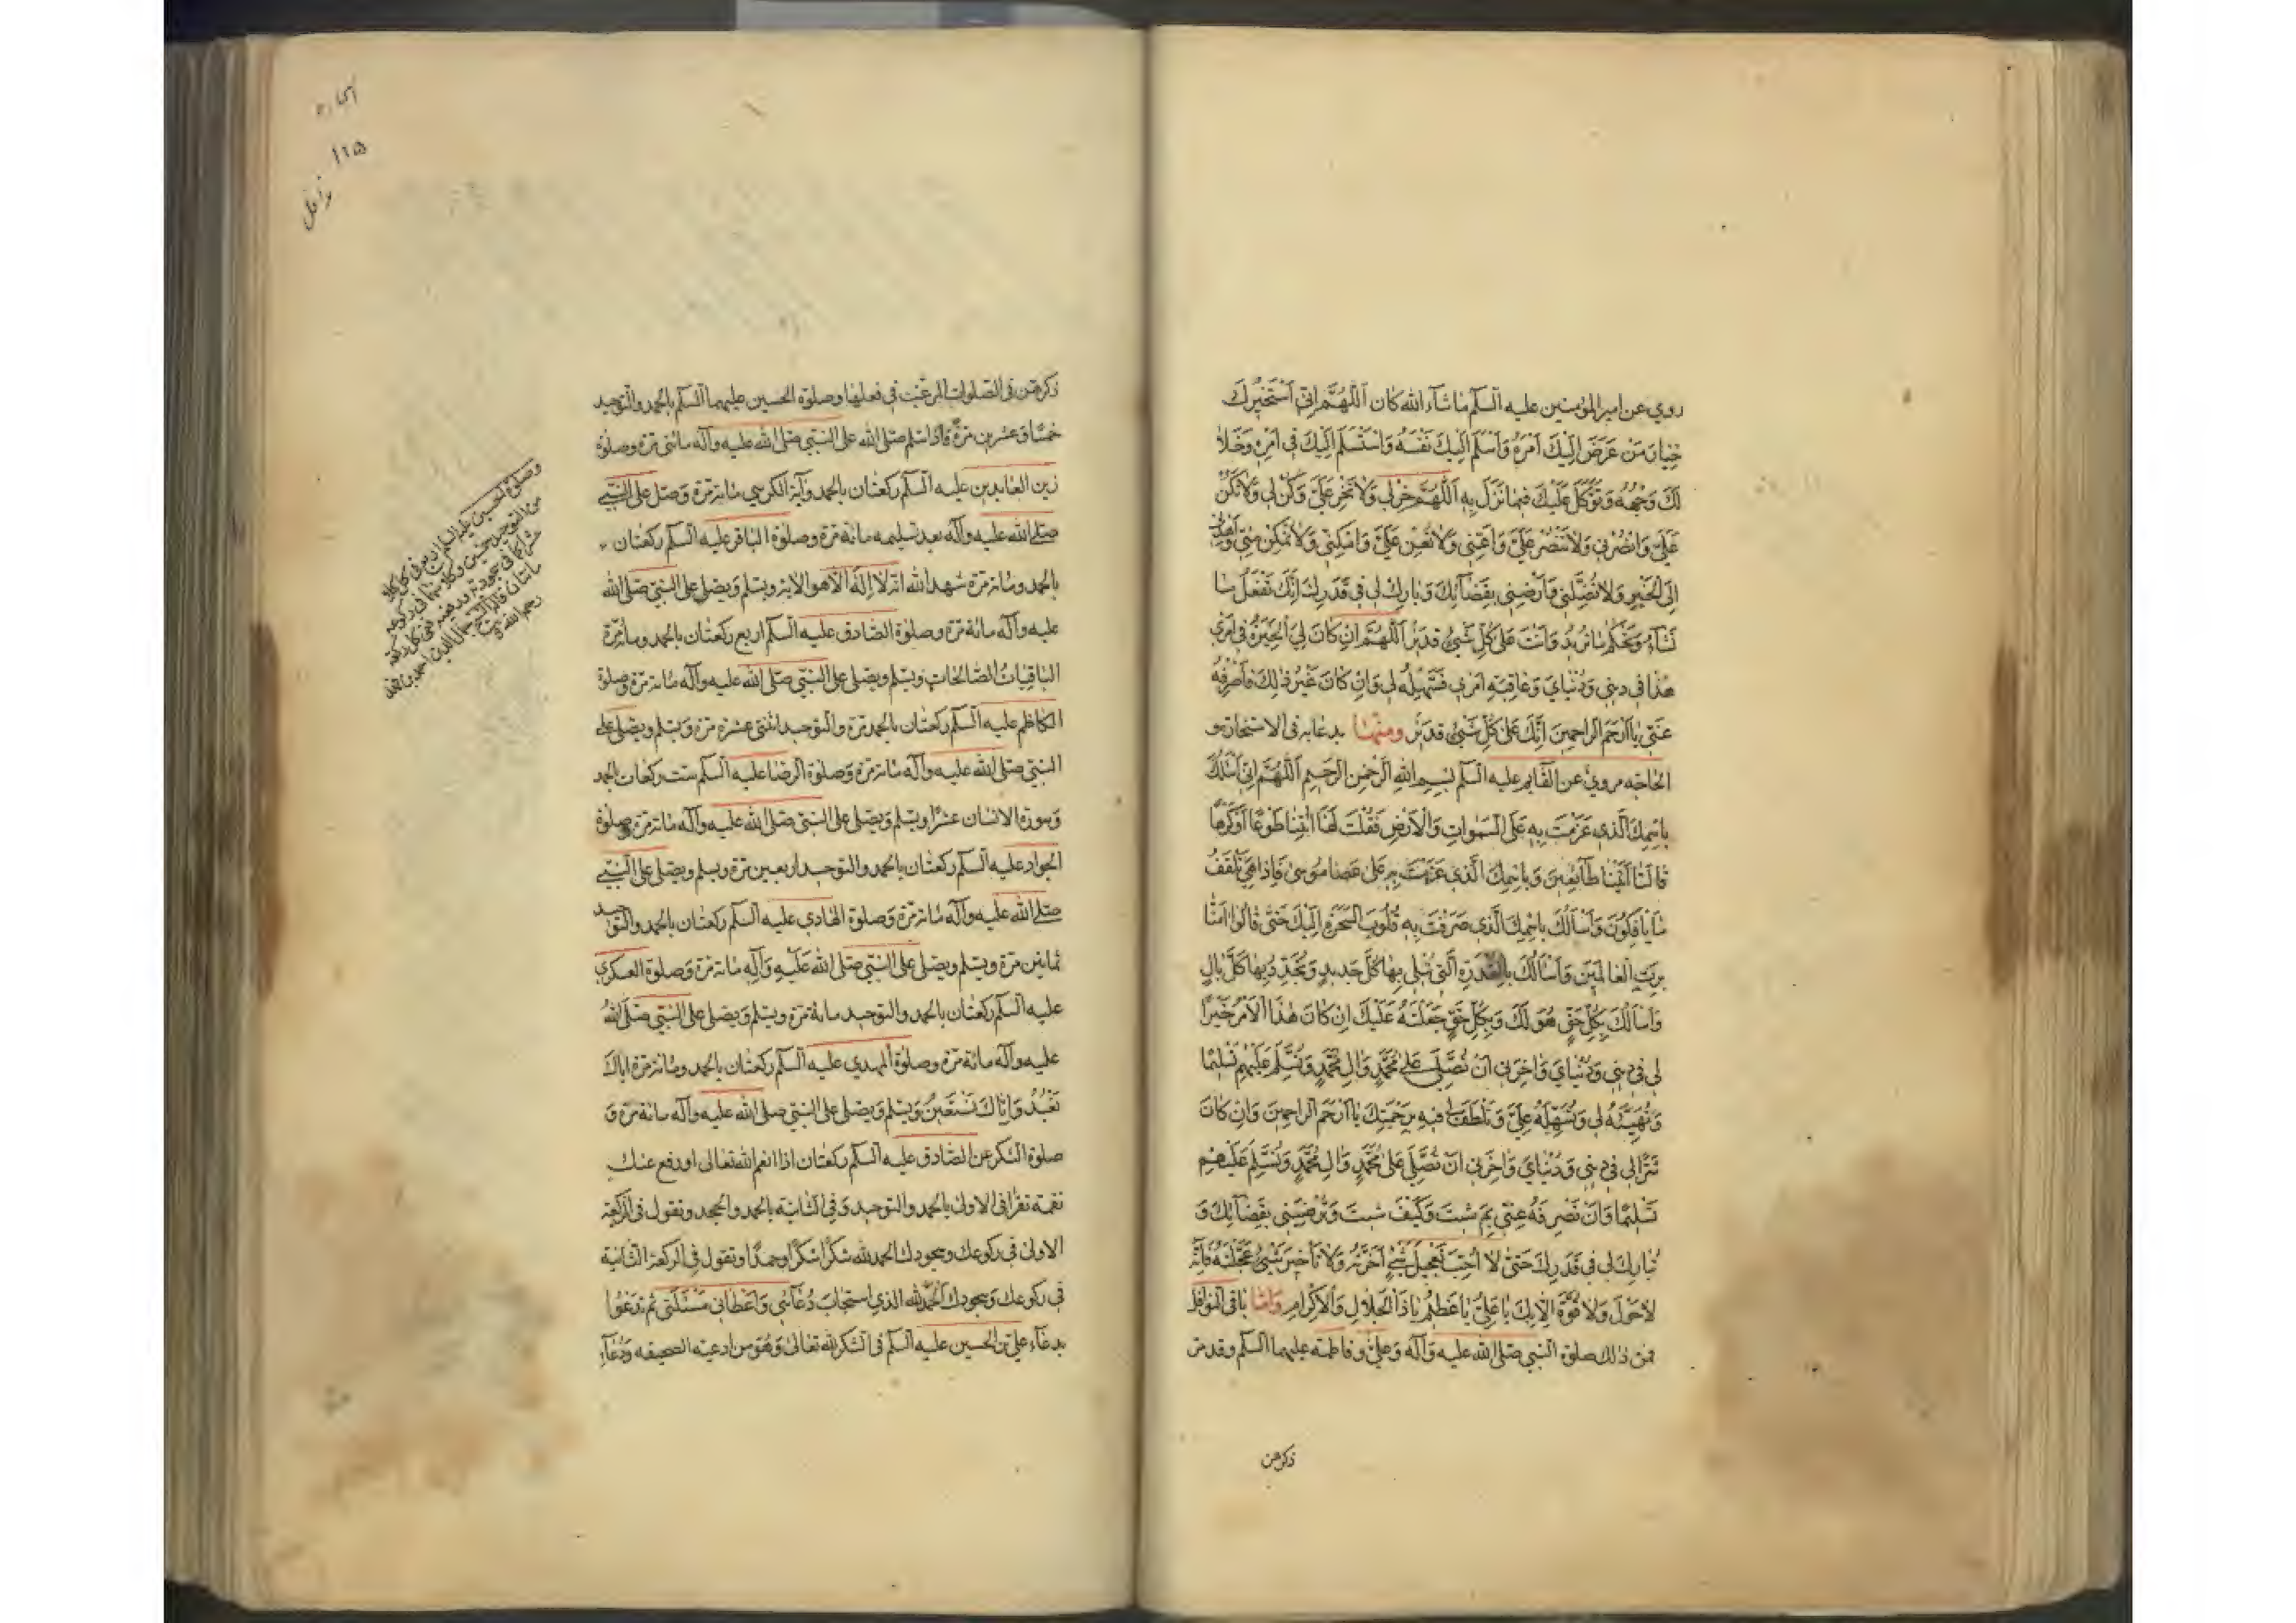 روي عن امير المؤمنين عليه السلم ما شاء الله كان اَللّهُمَّ اِنّي اَسْتَخيرُكَ
خِيارَ مَنْ عَرَضَ اِلَيْكَ اَمْرَهُ وَاَسْلَمَ اِلَيْكَ نَفْسَهُ وَاسْتَسْلَمَ اِلَيْكَ في اَمْرِهِ وَخَلا
لَكَ وَجْهُهُ وَتَوَكَّلَ عَلَيْكَ فيما نَزَلَ بِهِ اَللّهُمَّ خِرْ لي وَلا تَخِرْ عَلَيَّ وَكُنْ لي وَلا تَكُنْ
عَلَيَّ وَانْصُرْني وَلا تَنْصُرْ عَلَيَّ وَاَعِنّي وَلا تُعِنْ عَلَيَّ وَاَمْكِنّي وَلا تُمَكِّنْ مِنّي وَاهْدِني
اِلَى الْخَيْرِ وَلا تُضِلَّني وَاَرْضِني بِقَضآئِكَ وَبارِكْ لي في قَدَرِكَ اِنَّكَ تَفْعَلُ ما
تَشآءُ وَتَحْكُمُ ما تُريدُ وَاَنْتَ عَلى كُلِّ شَيْءٍ قَديرٌ اَللّهُمَّ اِنْ كانَ لِيَ الْخِيَرَةُ في اَمْري
هذا في ديني وَدُنْيايَ وَعاقِبَةِ اَمْري فَسَهِّلْهُ لي وَاِنْ كانَ غَيْرَ ذلِكَ فَاصْرِفْهُ
عَنّي يا اَرْحَمَ الرّاحِمينَ اِنَّكَ عَلى كُلِّ شَيْءٍ قَديرٌ ومنها يدعا به في الاستخارة و
الحاجة مرويّ عن القايم عليه السلم بسم الله الرحمن الرحيم اَللّهُمَّ اِنّي اَسْئَلُكَ
بِاسْمِكَ الَّذي عَزَمْتَ بِهِ عَلَى السَّمواتِ وَالْاَرْضِ فَقُلْتَ لَهُما ائْتِيا طَوْعًا اَوْ كَرْهًا
قالَتا اَتَيْنا طآئِعينَ وَبِاسْمِكَ الَّذي عَزَمْتَ بِهِ عَلى عَصا مُوسى فَاِذا هِيَ تَلْقَفُ
ما يَأْفِكُونَ وَاَسْاَلُكَ بِاسْمِكَ الَّذي صَرَفْتَ بِهِ قُلُوبَ السَّحَرَةِ اِلَيْكَ حَتّى قالُوا امَنّا
بِرَبِّ الْعالَمينَ وَاَسْاَلُكَ بِالْقُدْرَةِ الَّتي تُبْلي بِها كُلَّ جَديدٍ وَتُجَدِّدُ بِها كُلَّ بالٍ
وَاَسْاَلُكَ بِكُلِّ حَقٍّ هُوَ لَكَ وَبِكُلِّ حَقٍّ جَعَلْتَهُ عَلَيْكَ اِنْ كانَ هذَا الْاَمْرُ خَيْرًا
لي في ديني وَدُنْيايَ وَاخِرَتي اَنْ تُصَلِّيَ عَلى مُحَمَّدٍ وَالِ مُحَمَّدٍ وَتُسَلِّمَ عَلَيْهِمْ تَسْليمًا
وَتُهَيِّئَهُ لي وَتُسَهِّلَهُ عَلَيَّ وَتَلْطُفَ لي فيهِ بِرَحْمَتِكَ يا اَرْحَمَ الرّاحِمينَ وَاِنْ كانَ
شَرًّا لي في ديني وَدُنْيايَ وَاخِرَتي اَنْ تُصَلِّيَ عَلى مُحَمَّدٍ وَالِ مُحَمَّدٍ وَتُسَلِّمَ عَلَيْهِمْ
تَسْليمًا وَاَنْ تَصْرِفَهُ عَنّي بِمَ شِئْتَ وَكَيْفَ شِئْتَ وَتُرْضِيَني بِقَضآئِكَ وَ
تُبارِكَ لي في قَدَرِكَ حَتّى لا اُحِبَّ تَعْجيلَ شَيْءٍ اَخَّرْتَهُ وَلا تَأْخيرَ شَيْءٍ عَجَّلْتَهُ فَاِنَّهُ
لا حَوْلَ وَلا قُوَّةَ اِلّا بِكَ يا عَلِيُّ يا عَظيمُ يا ذَا الْجَلالِ وَالْاِكْرامِ وامّا باقي النوافل
فمن ذلك صلوة النبي صلى الله عليه وآله وعليّ وفاطمة عليهما السلم وقد مرّ
ذكرهن
ذكرهن في الصلوات المرغّب في فعلها وصلوة الحسين عليهما السلم بالحمد والتوحيد
خمسًا وعشرين مرّة فاذا سلم صلى الله على النبي صلى الله عليه وآله مائتي مرة وصلوة
زين العابدين عليه السلم ركعتان بالحمد وآية الكرسي مائة مرّة وصل على النبي
صلى الله عليه وآله بعد تسليمه مائة مرة وصلوة الباقر عليه السلم ركعتان
بالحمد ومائة مرّة شهد الله انه لا اله الا هو الاية ويسلم ويصلي على النبي صلى الله
عليه وآله مائة مرة وصلوة الصادق عليه السلم اربع ركعتان بالحمد ومائة مرة
الباقيات الصالحات ويسلم ويصلي على النبي صلى الله عليه وآله مائة مرة وصلوة
الكاظم عليه السلم ركعتان بالحمد مرة والتوحيد اثنتي عشرة مرة ويسلم ويصلي على
النبي صلى الله عليه وآله مائة مرّة وصلوة الرضا عليه السلم ست ركعات بالحمد
وسورة الانسان عشرًا ويسلم ويصلي على النبي صلى الله عليه وآله مائة مرة وصلوة
الجواد عليه السلم ركعتان بالحمد والتوحيد اربعين مرة ويسلم ويصلي على النبي
صلى الله عليه وآله مائة مرّة وصلوة الهادي عليه السلم ركعتان بالحمد والتوحيد
ثمانين مرة ويسلم ويصلي على النبي صلى الله عليه وآله مائة مرة وصلوة العسكري
عليه السلم ركعتان بالحمد والتوحيد مائة مرة ويسلم ويصلي على النبي صلى الله
عليه وآله مائة مرة وصلوة المهدي عليه السلم ركعتان بالحمد ومائة مرة اياك
نَعْبُدُ وَاِيّاكَ نَسْتَعينُ ويسلم ويصلي على النبي صلى الله عليه وآله مائة مرة و
صلوة الشكر عن الصادق عليه السلم ركعتان اذا انعم الله تعالى او دفع عنك
نقمة تقرأ في الاولى بالحمد والتوحيد وفي الثانية بالحمد والجحد وتقول في الركعة
الاولى في ركوعك وسجودك الحمد لله شكرًا شكرًا وحمدًا وتقول في الركعة الثانية
في ركوعك وسجودك اَلْحَمْدُ لِلّهِ الذي استجاب دُعآئي وَاَعْطاني مَسْئَلَتي ثم تدعوا
بدعاء علي بن الحسين عليه السلم في الشكر لله تعالى وهو من ادعية الصحيفة ودعآء
وصلوة الحسين عليه السلم
١٢٥
نوافل